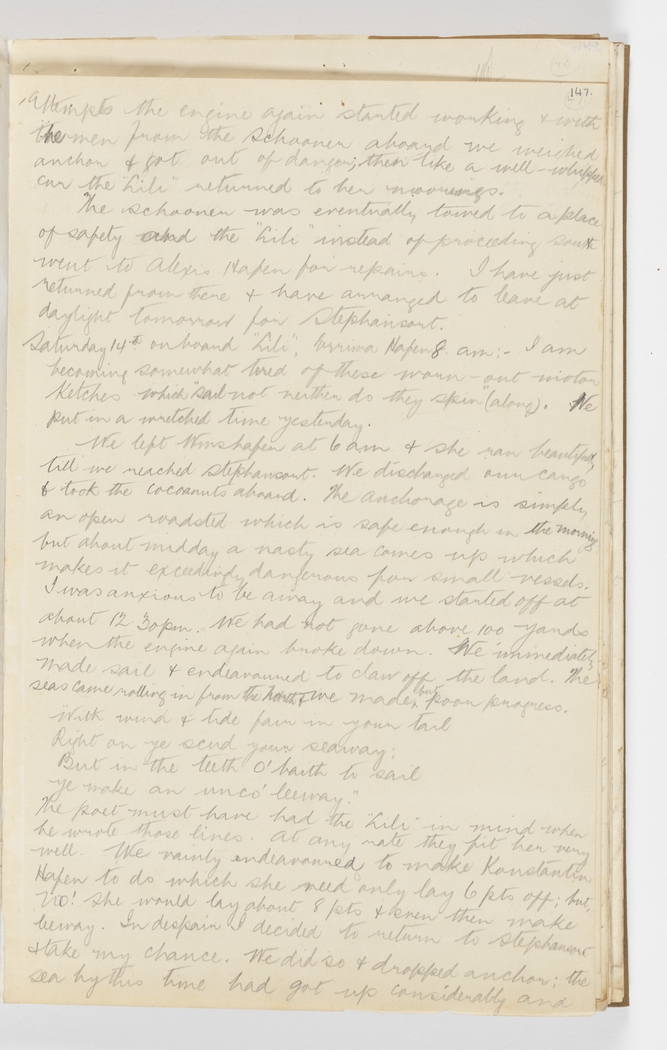 147.
Attempts the engine again started working & with
the men from the schooner aboard we weighed
anchor & got out of danger; then like a well-whipped
cur the "Lili" returned to her moorings.
The schooner was eventually towed to a place
of safety and the "Lili" instead of proceeding south
went to Alexis Hafen for repairs. I have just
returned from there & have arranged to leave at
daylight tomorrow for Stephansort.
Saturday 14th on board "Lili", Errima Hafen 8 am:- I am
becoming somewhat tired of these worn-out motor
Ketches which "sail not neither do they spin" (along). We
put in a wretched time yesterday.
We left Wmshafen at 6 am & she ran beautifully
till we reached Stephansort. We discharged our cargo
& took the cocoanuts aboard. The anchorage is simply
an open roadsted which is safe enough in the morning
but about midday a nasty sea comes up which
makes it exceedingly dangerous for small vessels.
I was anxious to be away and we started off at
about 12 30pm. We had not gone above 100 yards
when the engine again broke down. We immediately
made sail & endeavoured to claw off the land. The
seas came rolling in from the North & we made but poor progress.
"With wind & tide fair in your tail
Right on ye scud your seaway;
But in the teeth O' baith to sail
Ye make an unco' leeway."
The poet must have had the "Lili" in mind when
he wrote those lines. At any rate they fit her very
well. We vainly endeavoured to make Konstantin
Hafen to do which she need only lay 6 pts off; but,
No! she would lay about 8 pts & even then make
leeway. In despair I decided to return to Stephansort
& take my chance. We did so & dropped anchor; the
sea by this time had got up considerably and